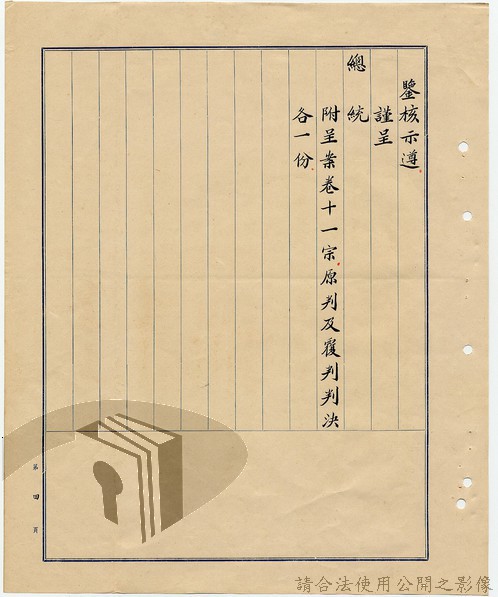 鑒核示遵
謹呈
總統
附呈案卷十一宗原判及覆判判決
各一份
第四頁
請合法使用公開之影像